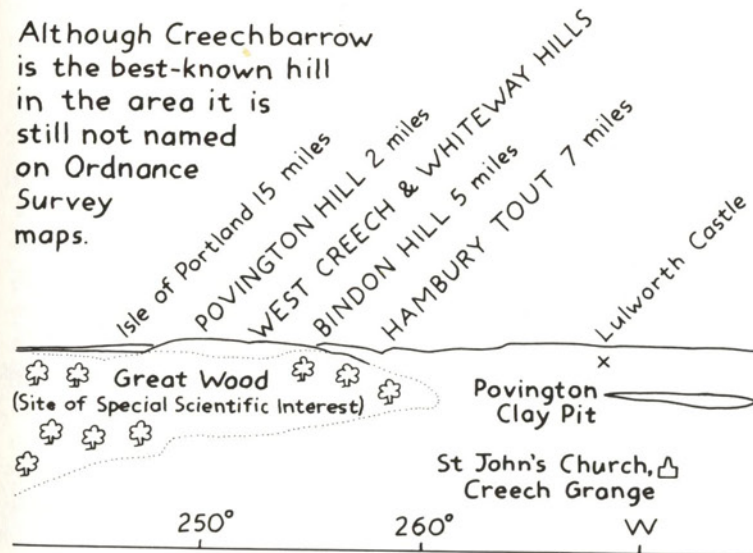 Although Creechbarrow
is the best-known hill
in the area it is
still not named
on Ordnance
Survey
maps.
Isle of Portland 15 miles
POVINGTON HILL 2 miles
WEST CREECH & WHITEWAY HILLS
BINDON HILL 5 miles
HAMBURY TOUT 7 miles
Lulworth Castle
x
Great Wood
(Site of Special Scientific Interest)
Povington
Clay Pit
St John's Church,
Creech Grange
250°
260°
W